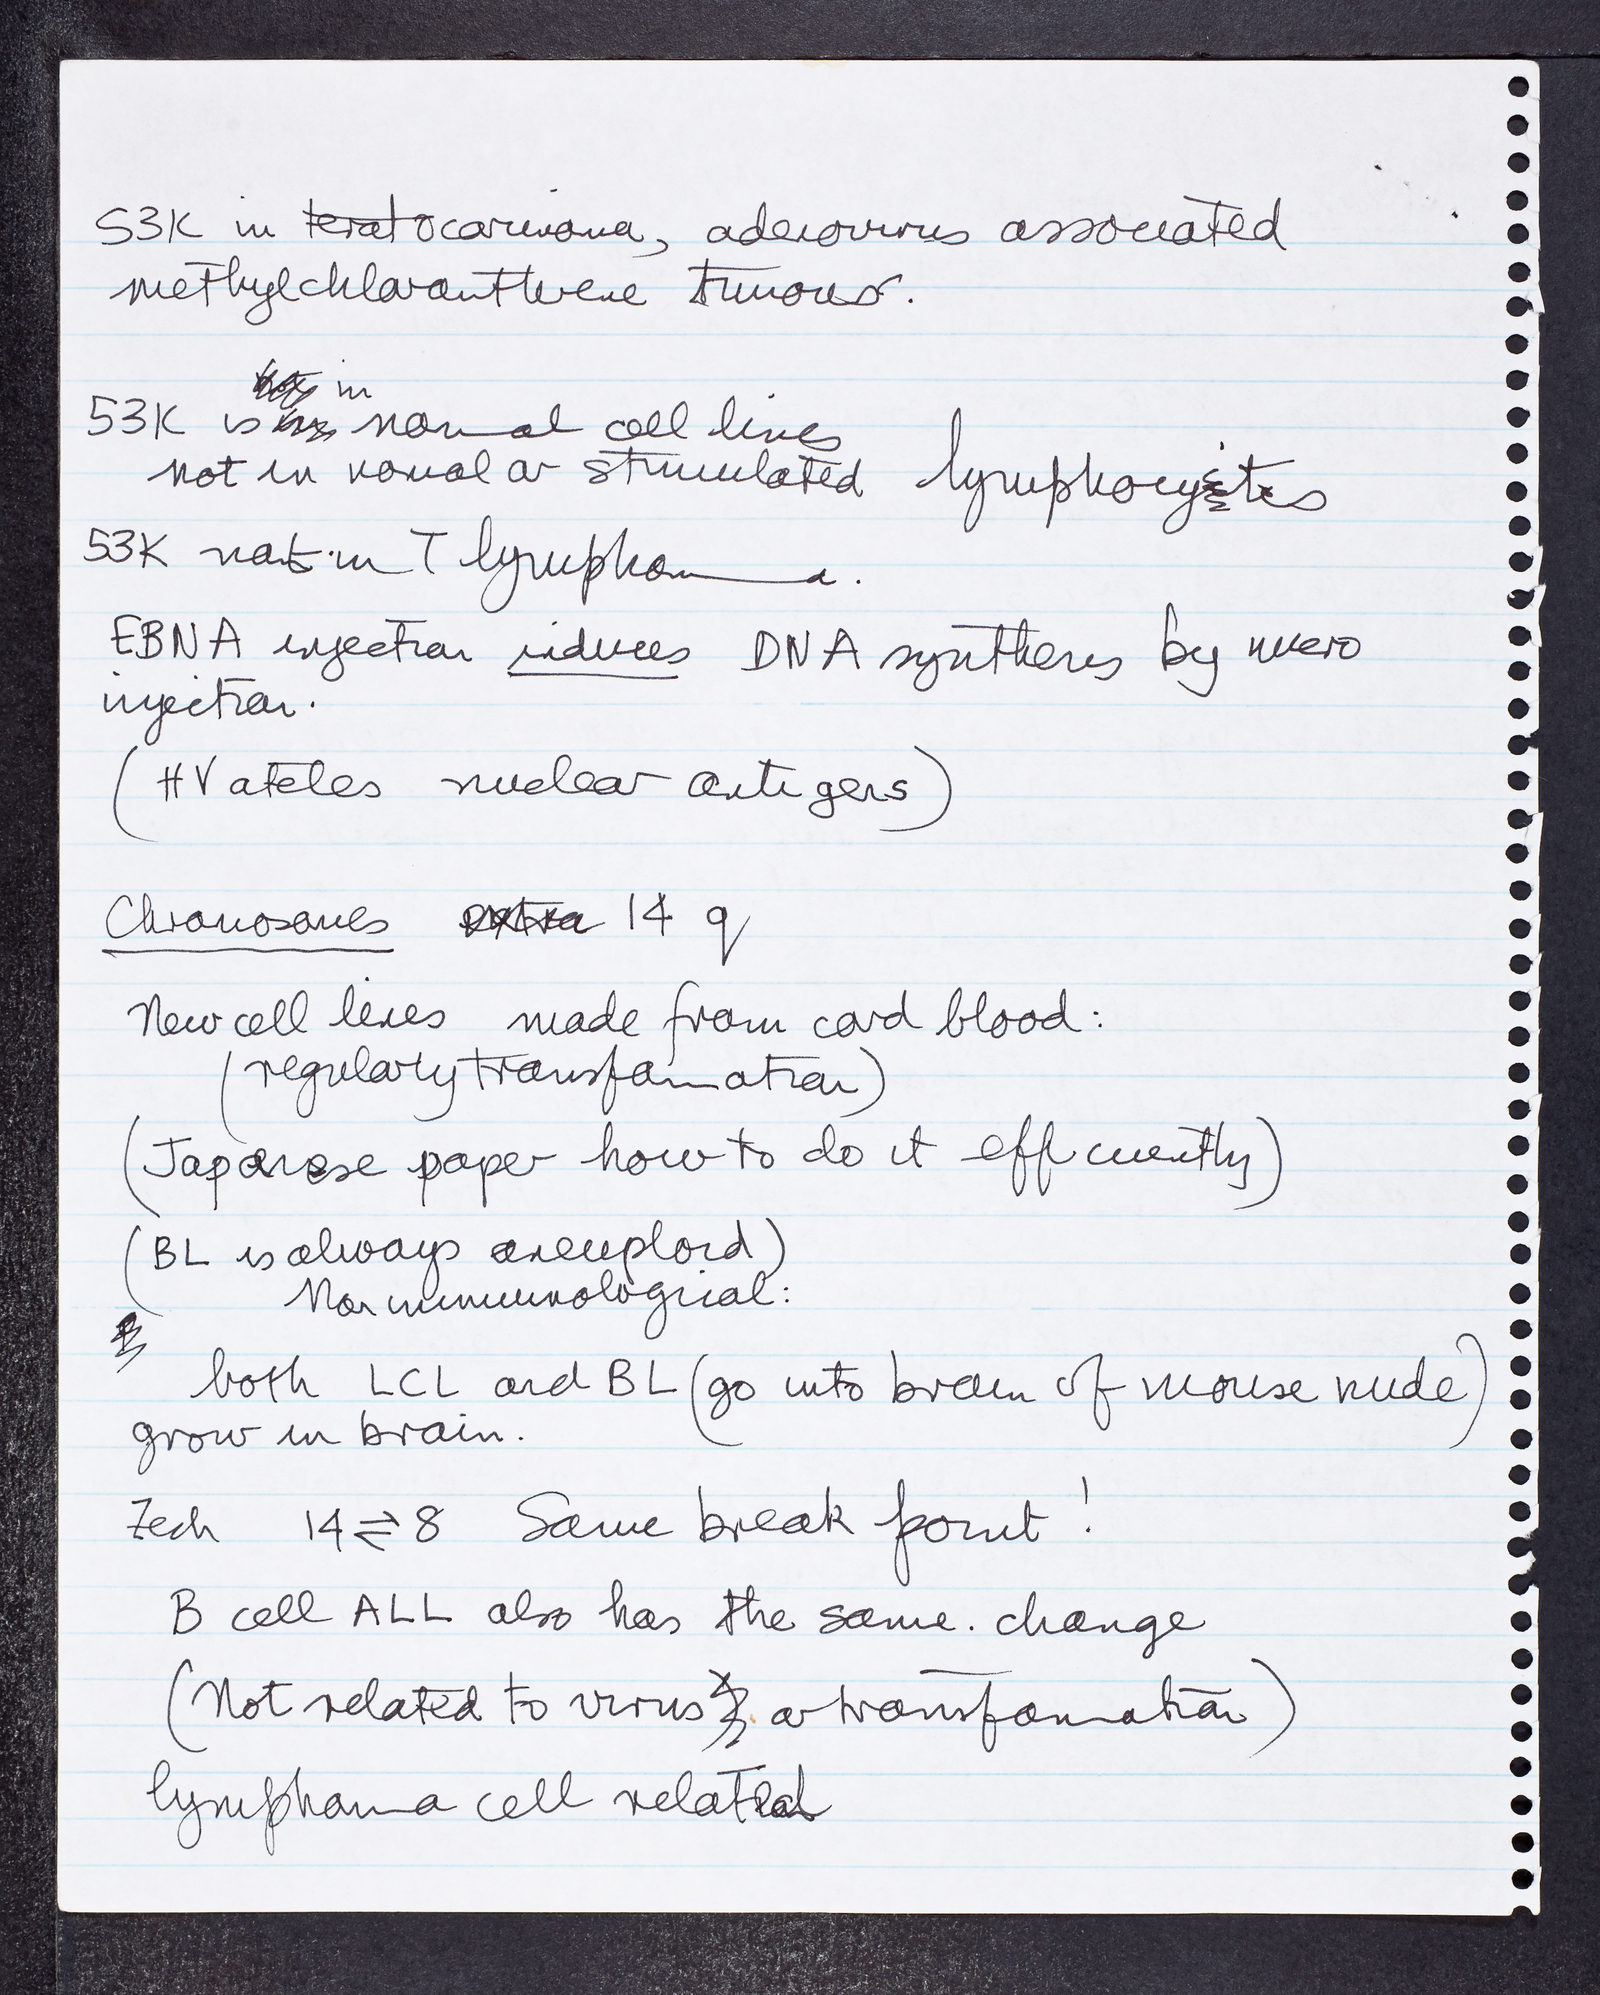 53K in teratocarcinoma, adenovirus associated
methylchloranthrene tumours.
in
53K is normal cell lines
not in normal or stimulated lymphocytes
53K not in T lymphoma.
EBNA injection induces DNA synthesis by micro
injection.
(HV ateles nuclear antigens)
Chromosomes extra 14 q
New cell lines made from cord blood:
(regularly transformation)
(Japanese paper how to do it efficiently)
(BL is always aneuploid)
Non immunological:
both LCL and BL (go into brain of mouse nude)
grow in brain.
Zech 14⇌8 Same break point!
B cell ALL also has the same. change
(Not related to virus or transformation)
lymphoma cell related